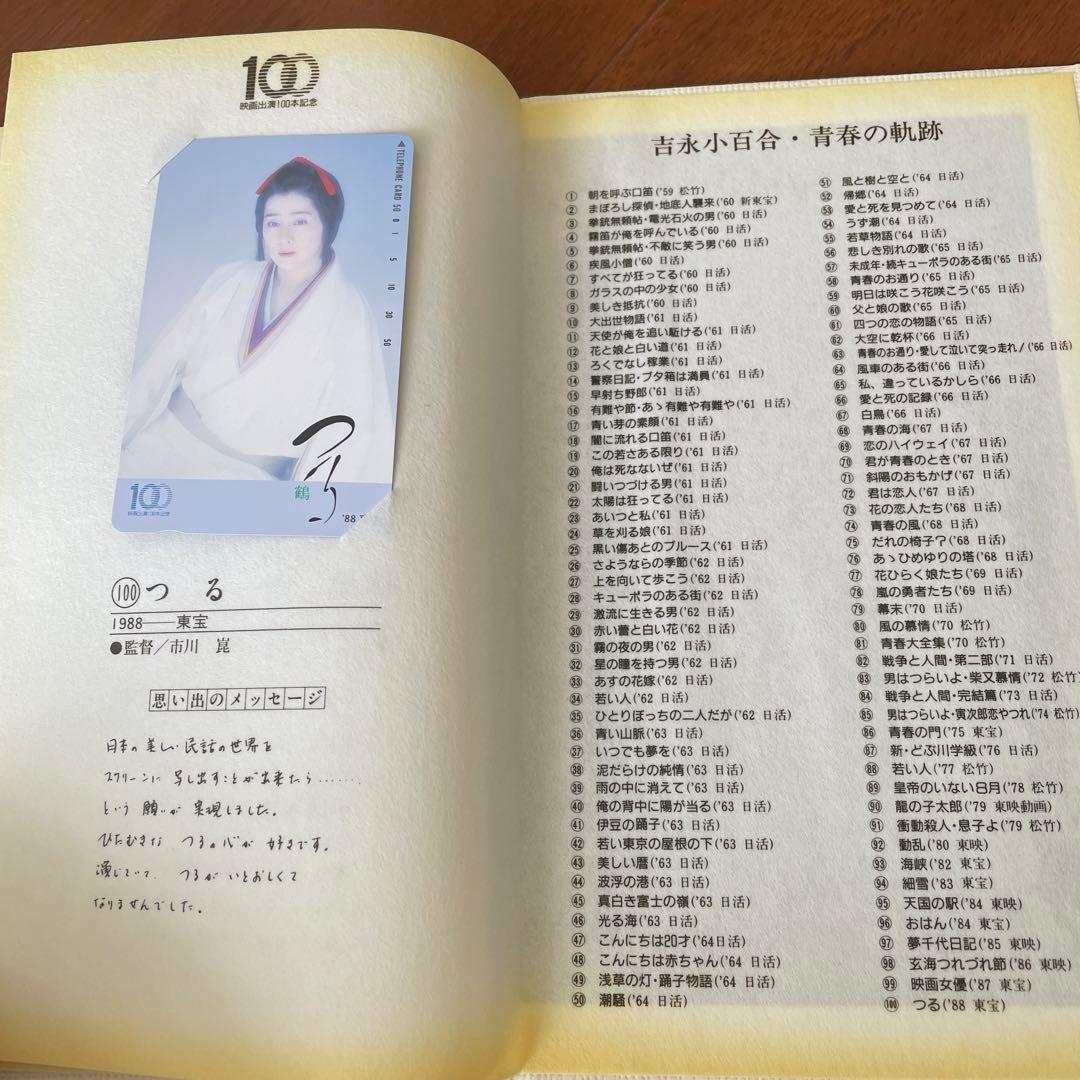 100
映画出演100本記念
TELEPHONE CARD 50
0 1 5 10 30 50
つる
鶴
100
映画出演100本記念
'88
100 つる
1988——東宝
●監督／市川 崑
思い出のメッセージ
日本の美しい民話の世界を
スクリーンに 写し出すことが出来たら………
という 願いが 実現しました。
ひたむきな つるの心が 好きです。
演じていて、つるが いとおしくて
なりませんでした。
吉永小百合・青春の軌跡
① 朝を呼ぶ口笛('59 松竹)
② まぼろし探偵・地底人襲来('60 新東宝)
③ 拳銃無頼帖・電光石火の男('60 日活)
④ 霧笛が俺を呼んでいる('60 日活)
⑤ 拳銃無頼帖・不敵に笑う男('60 日活)
⑥ 疾風小僧('60 日活)
⑦ すべてが狂ってる('60 日活)
⑧ ガラスの中の少女('60 日活)
⑨ 美しき抵抗('60 日活)
⑩ 大出世物語('61 日活)
⑪ 天使が俺を追い駆ける('61 日活)
⑫ 花と娘と白い道('61 日活)
⑬ ろくでなし稼業('61 日活)
⑭ 警察日記・ブタ箱は満員('61 日活)
⑮ 早射ち野郎('61 日活)
⑯ 有難や節・あゝ有難や有難や('61 日活)
⑰ 青い芽の素顔('61 日活)
⑱ 闇に流れる口笛('61 日活)
⑲ この若さある限り('61 日活)
⑳ 俺は死なないぜ('61 日活)
㉑ 闘いつづける男('61 日活)
㉒ 太陽は狂ってる('61 日活)
㉓ あいつと私('61 日活)
㉔ 草を刈る娘('61 日活)
㉕ 黒い傷あとのブルース('61 日活)
㉖ さようならの季節('62 日活)
㉗ 上を向いて歩こう('62 日活)
㉘ キューポラのある街('62 日活)
㉙ 激流に生きる男('62 日活)
㉚ 赤い蕾と白い花('62 日活)
㉛ 霧の夜の男('62 日活)
㉜ 星の瞳を持つ男('62 日活)
㉝ あすの花嫁('62 日活)
㉞ 若い人('62 日活)
㉟ ひとりぼっちの二人だが('62 日活)
㊱ 青い山脈('63 日活)
㊲ いつでも夢を('63 日活)
㊳ 泥だらけの純情('63 日活)
㊴ 雨の中に消えて('63 日活)
㊵ 俺の背中に陽が当る('63 日活)
㊶ 伊豆の踊子('63 日活)
㊷ 若い東京の屋根の下('63 日活)
㊸ 美しい暦('63 日活)
㊹ 波浮の港('63 日活)
㊺ 真白き富士の嶺('63 日活)
㊻ 光る海('63 日活)
㊼ こんにちは20才('64日活)
㊽ こんにちは赤ちゃん('64 日活)
㊾ 浅草の灯・踊子物語('64 日活)
㊿ 潮騒('64 日活)
51 風と樹と空と('64 日活)
52 帰郷('64 日活)
53 愛と死を見つめて('64 日活)
54 うず潮('64 日活)
55 若草物語('64 日活)
56 悲しき別れの歌('65 日活)
57 未成年・続キューポラのある街('65 日活)
58 青春のお通り('65 日活)
59 明日は咲こう花咲こう('65 日活)
60 父と娘の歌('65 日活)
61 四つの恋の物語('65 日活)
62 大空に乾杯('66 日活)
63 青春のお通り・愛して泣いて突っ走れ！('66 日活)
64 風車のある街('66 日活)
65 私、違っているかしら('66 日活)
66 愛と死の記録('66 日活)
67 白鳥('66 日活)
68 青春の海('67 日活)
69 恋のハイウェイ('67 日活)
70 君が青春のとき('67 日活)
71 斜陽のおもかげ('67 日活)
72 君は恋人('67 日活)
73 花の恋人たち('68 日活)
74 青春の風('68 日活)
75 だれの椅子？('68 日活)
76 あゝひめゆりの塔('68 日活)
77 花ひらく娘たち('69 日活)
78 嵐の勇者たち('69 日活)
79 幕末('70 日活)
80 風の慕情('70 松竹)
81 青春大全集('70 松竹)
82 戦争と人間・第二部('71 日活)
83 男はつらいよ・柴又慕情('72 松竹)
84 戦争と人間・完結篇('73 日活)
85 男はつらいよ・寅次郎恋やつれ('74 松竹)
86 青春の門('75 東宝)
87 新・どぶ川学級('76 日活)
88 若い人('77 松竹)
89 皇帝のいない八月('78 松竹)
90 龍の子太郎('79 東映動画)
91 衝動殺人・息子よ('79 松竹)
92 動乱('80 東映)
93 海峡('82 東宝)
94 細雪('83 東宝)
95 天国の駅('84 東映)
96 おはん('84 東宝)
97 夢千代日記('85 東映)
98 玄海つれづれ節('86 東映)
99 映画女優('87 東宝)
100 つる('88 東宝)